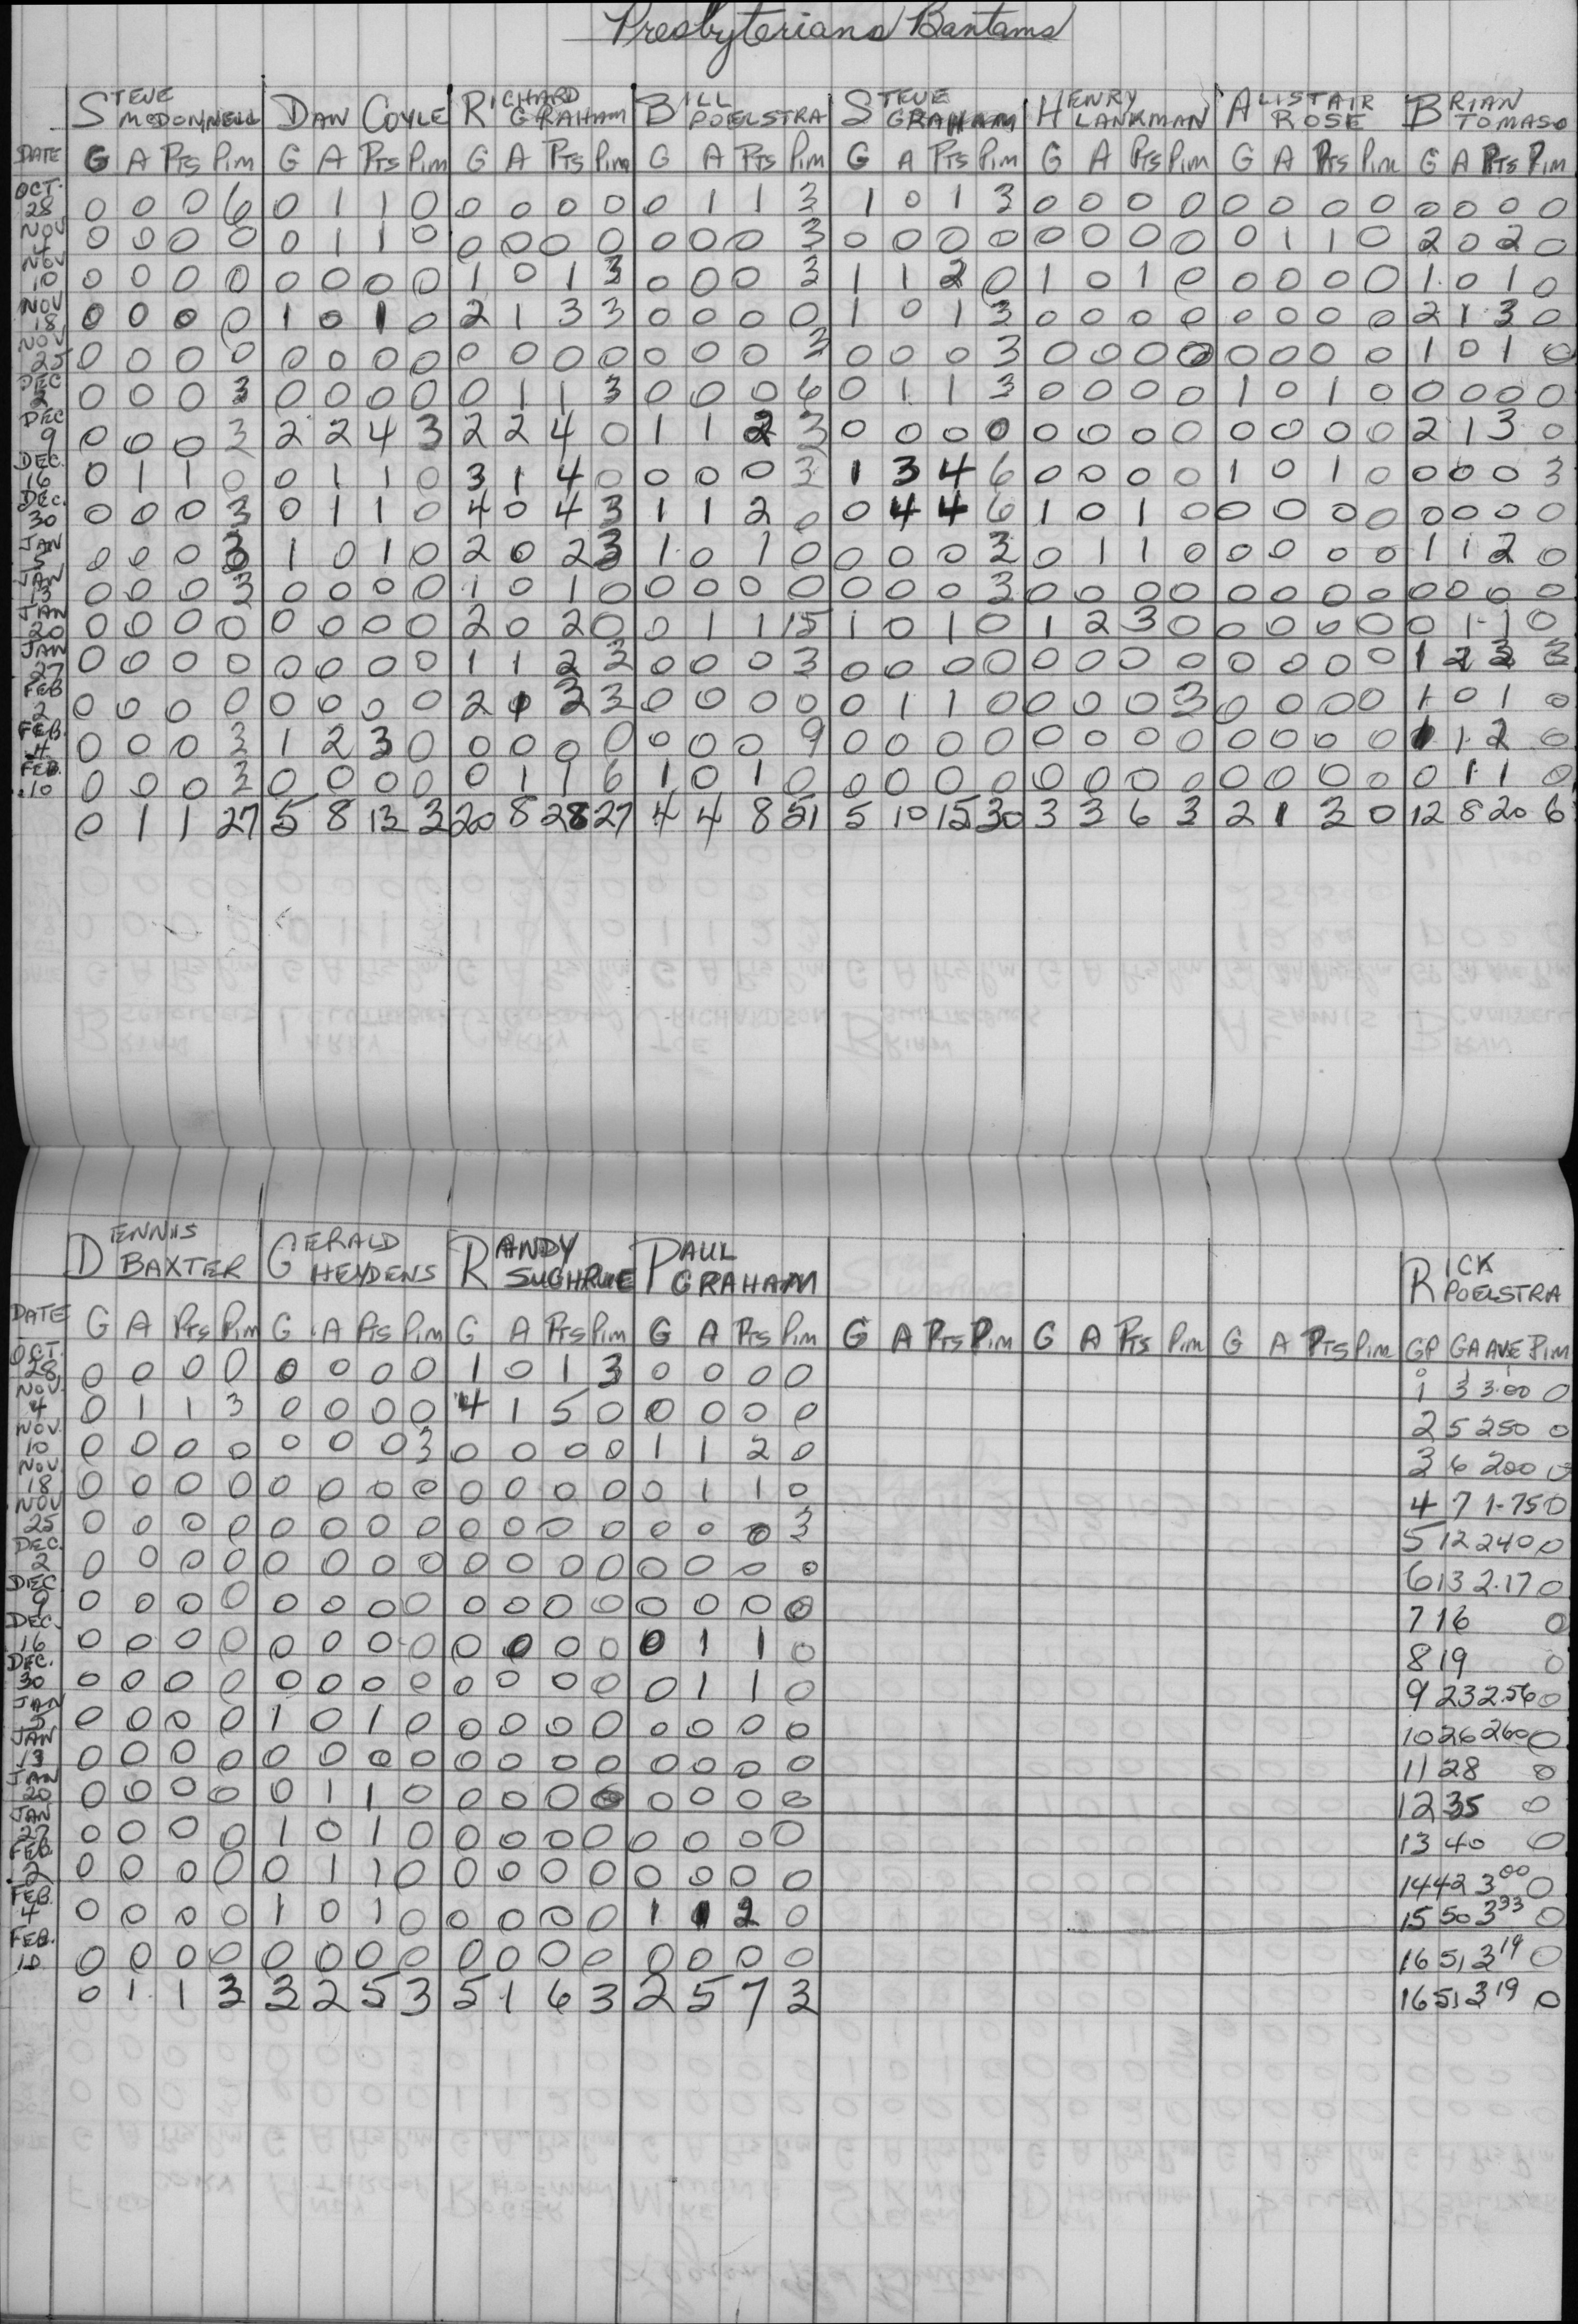 Presbyterians Bantams
STEVE MCDONNELL DAN COYLE RICHARD GRAHAM BILL POELSTRA STEVE GRAHAM HENRY LANKMAN ALISTAIR ROSE BRIAN TOMASO
DATE G A PTS PIM G A PTS PIM G A PTS PIM G A PTS PIM G A PTS PIM G A PTS PIM G A PTS PIM G A PTS PIM
OCT. 28 0 0 0 6 0 1 1 0 0 0 0 0 0 1 1 3 1 0 1 3 0 0 0 0 0 0 0 0 0 0 0 0
NOV 4 0 0 0 0 0 1 1 0 0 0 0 0 0 0 0 3 0 0 0 0 0 0 0 0 0 1 1 0 2 0 2 0
NOV 10 0 0 0 0 0 0 0 0 1 0 1 3 0 0 0 3 1 1 2 0 1 0 1 0 0 0 0 0 1 0 1 0
NOV 18 0 0 0 0 1 0 1 0 2 1 3 3 0 0 0 0 1 0 1 3 0 0 0 0 0 0 0 0 2 1 3 0
NOV 25 0 0 0 0 0 0 0 0 0 0 0 0 0 0 0 3 0 0 0 3 0 0 0 0 0 0 0 0 1 0 1 0
DEC 2 0 0 0 3 0 0 0 0 0 1 1 3 0 0 0 6 0 1 1 3 0 0 0 0 1 0 1 0 0 0 0 0
DEC 9 0 0 0 3 2 2 4 3 2 2 4 0 1 1 2 3 0 0 0 0 0 0 0 0 0 0 0 0 2 1 3 0
DEC. 16 0 1 1 0 0 1 1 0 3 1 4 0 0 0 0 3 1 3 4 6 0 0 0 0 1 0 1 0 0 0 0 3
DEC. 30 0 0 0 3 0 1 1 0 4 0 4 3 1 1 2 0 0 4 4 6 1 0 1 0 0 0 0 0 0 0 0 0
JAN 5 0 0 0 3 1 0 1 0 2 0 2 3 1 0 1 0 0 0 0 3 0 1 1 0 0 0 0 0 1 1 2 0
JAN 13 0 0 0 3 0 0 0 0 1 0 1 0 0 0 0 0 0 0 0 3 0 0 0 0 0 0 0 0 0 0 0 0
JAN 20 0 0 0 0 0 0 0 0 2 0 2 0 0 1 1 15 1 0 1 0 1 2 3 0 0 0 0 0 0 1 1 0
JAN 27 0 0 0 0 0 0 0 0 1 1 2 3 0 0 0 3 0 0 0 0 0 0 0 0 0 0 0 0 1 2 3 3
FEB 2 0 0 0 0 0 0 0 0 2 1 3 3 0 0 0 0 0 1 1 0 0 0 0 3 0 0 0 0 1 0 1 0
FEB. 4 0 0 0 3 1 2 3 0 0 0 0 0 0 0 0 9 0 0 0 0 0 0 0 0 0 0 0 0 1 1 2 0
FEB. 10 0 0 0 3 0 0 0 0 0 1 1 6 1 0 1 0 0 0 0 0 0 0 0 0 0 0 0 0 0 1 1 0
0 1 1 27 5 8 13 3 20 8 28 27 4 4 8 51 5 10 15 30 3 3 6 3 2 1 3 0 12 8 20 6
DENNIS BAXTER GERALD HEYDENS RANDY SUGHRUE PAUL GRAHAM RICK POELSTRA
DATE G A PTS PIM G A PTS PIM G A PTS PIM G A PTS PIM G A PTS PIM G A PTS PIM G A PTS PIM GP GA AVE PIM
OCT. 28 0 0 0 0 0 0 0 0 1 0 1 3 0 0 0 0 1 3 3.00 0
NOV. 4 0 1 1 3 0 0 0 0 4 1 5 0 0 0 0 0 2 5 250 0
NOV. 10 0 0 0 0 0 0 0 3 0 0 0 0 1 1 2 0 3 6 200 0
NOV. 18 0 0 0 0 0 0 0 0 0 0 0 0 0 1 1 0 4 7 1.75 0
NOV 25 0 0 0 0 0 0 0 0 0 0 0 0 0 0 0 3 5 12 240 0
DEC. 2 0 0 0 0 0 0 0 0 0 0 0 0 0 0 0 0 6 13 2.17 0
DEC 9 0 0 0 0 0 0 0 0 0 0 0 0 0 0 0 0 7 16 0
DEC. 16 0 0 0 0 0 0 0 0 0 0 0 0 0 1 1 0 8 19 0
DEC. 30 0 0 0 0 0 0 0 0 0 0 0 0 0 1 1 0 9 23 2.56 0
JAN 5 0 0 0 0 1 0 1 0 0 0 0 0 0 0 0 0 10 26 260 0
JAN 13 0 0 0 0 0 0 0 0 0 0 0 0 0 0 0 0 11 28 0
JAN 20 0 0 0 0 0 1 1 0 0 0 0 0 0 0 0 0 12 35 0
JAN 27 0 0 0 0 1 0 1 0 0 0 0 0 0 0 0 0 13 40 0
FEB 2 0 0 0 0 0 1 1 0 0 0 0 0 0 0 0 0 14 42 3 00 0
FEB. 4 0 0 0 0 1 0 1 0 0 0 0 0 1 1 2 0 15 50 3 33 0
FEB. 10 0 0 0 0 0 0 0 0 0 0 0 0 0 0 0 0 16 51 3 19 0
0 1 1 3 3 2 5 3 5 1 6 3 2 5 7 3 16 51 3 19 0